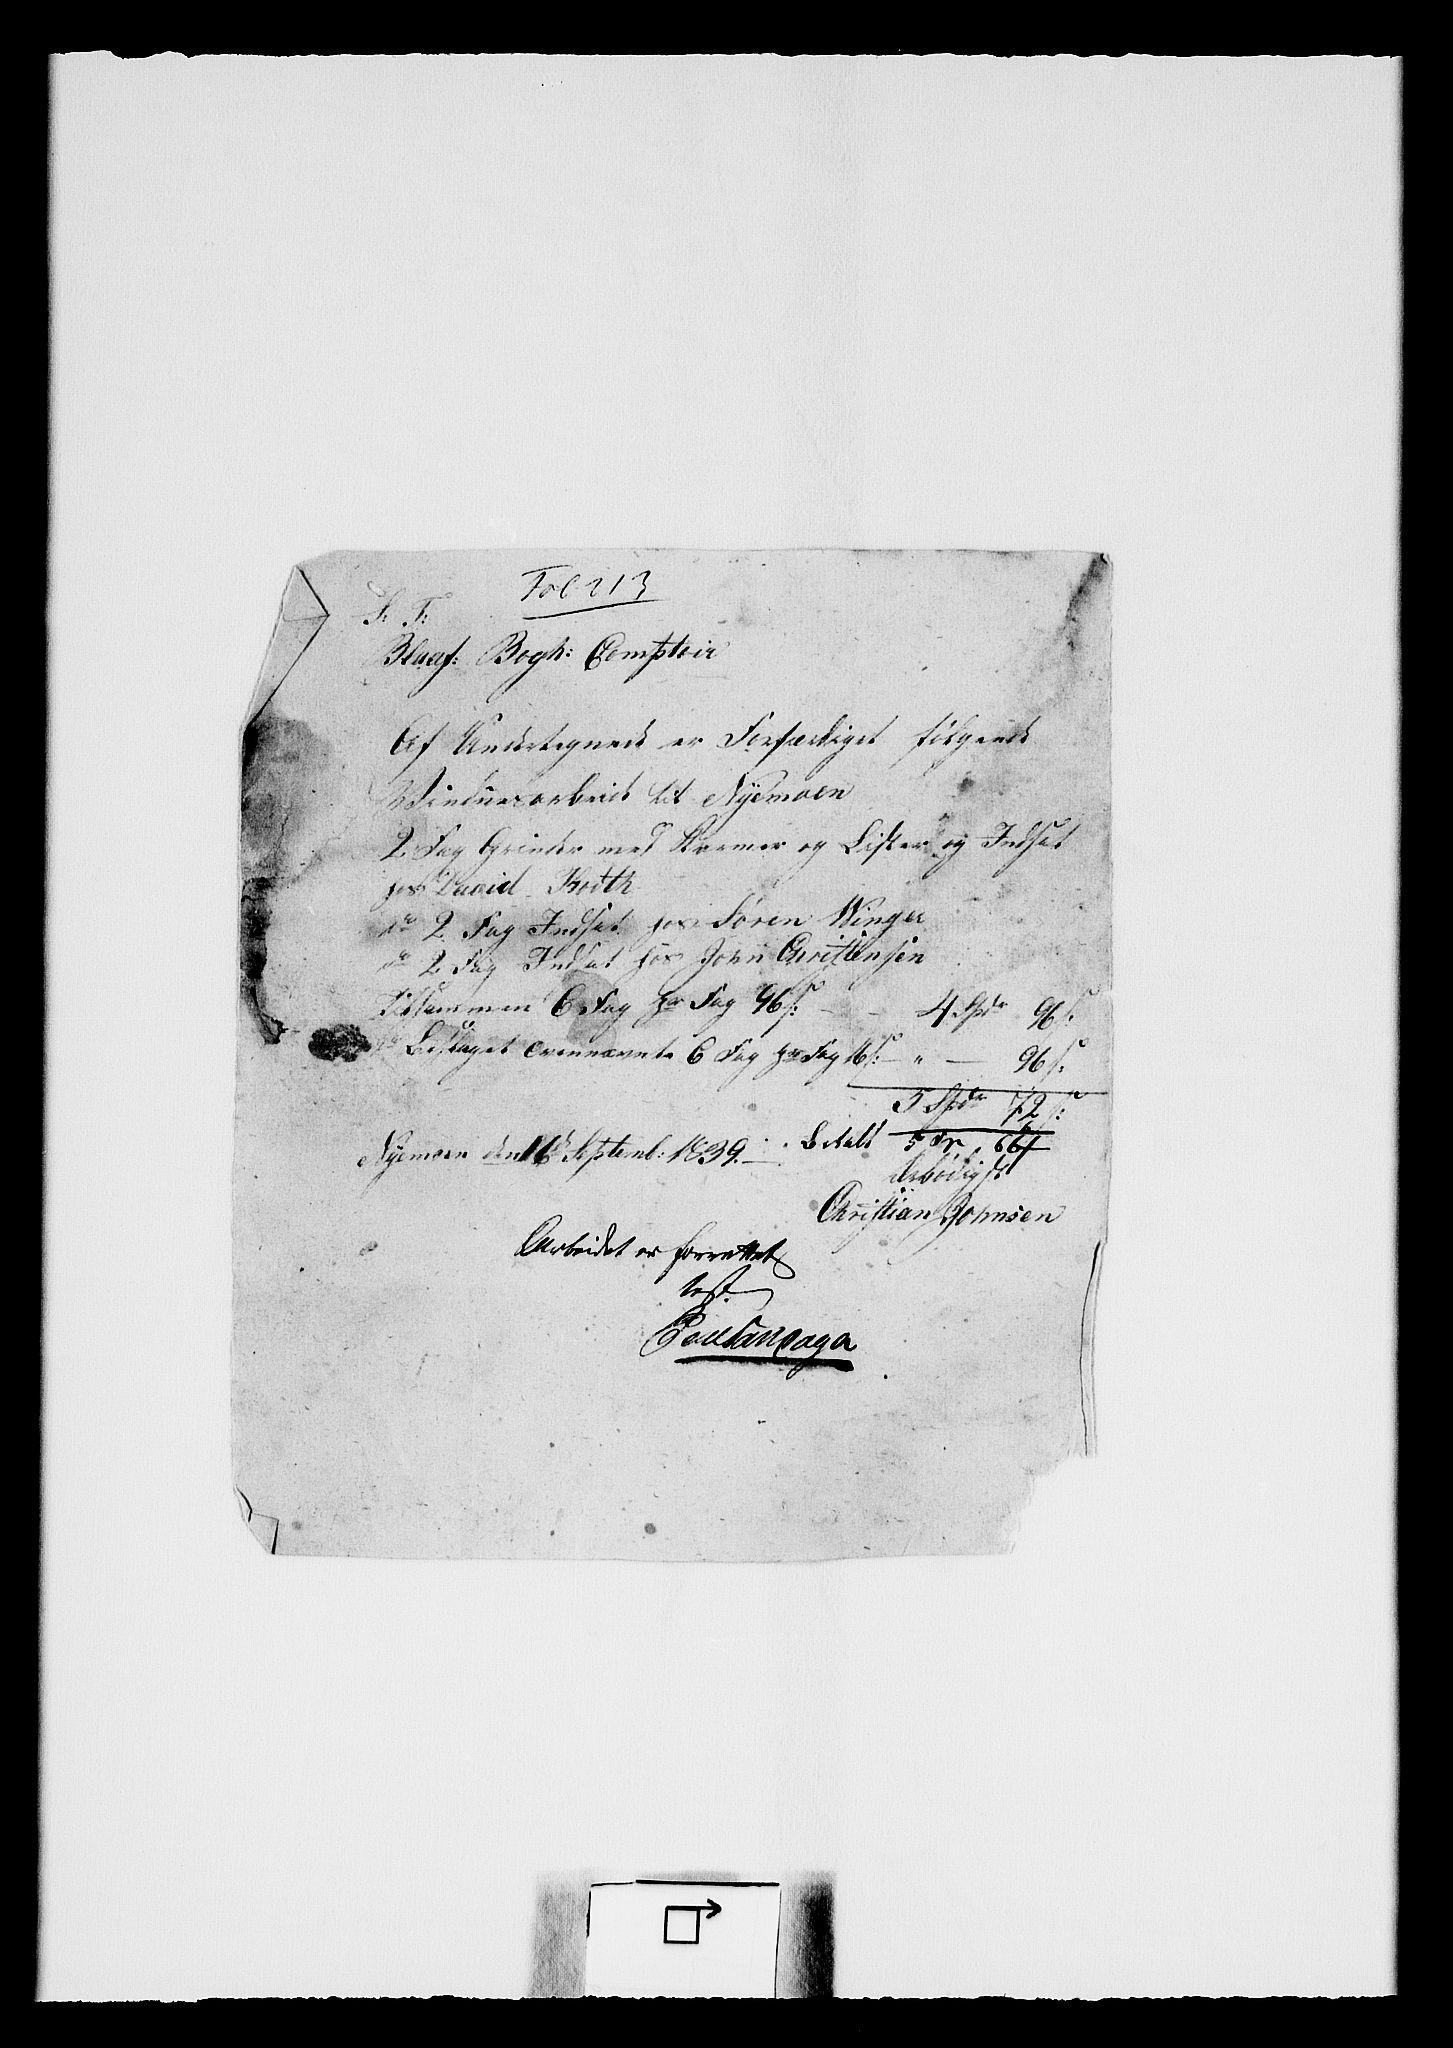 Fol 213
S: T:
Blaaf: Bogh: Comptoir
Af Undertegnede er Forfærdiget følgende
Winduesarbeide til Nyemoen
2 Fag Grinder med Karmer og Lister og Indsat
hos David Both
do 2 Fag Indsat hos Søren Winger
do 2 Fag Indsat hos John Christensen
Tilsammen 6 Fag pr Fag 96 s: - - 4 Spdr 96 s:
do Beslaget ovennævnte 6 Fag pr Fag 16 s: " — 96 s:
5 Spdr 72 s:
Nyemoen den 16de Septemb: 1839. Betalt 5 Sp. 66
Ærbødigst
Christian Johnsen
Arbeidet er forrettet
test.